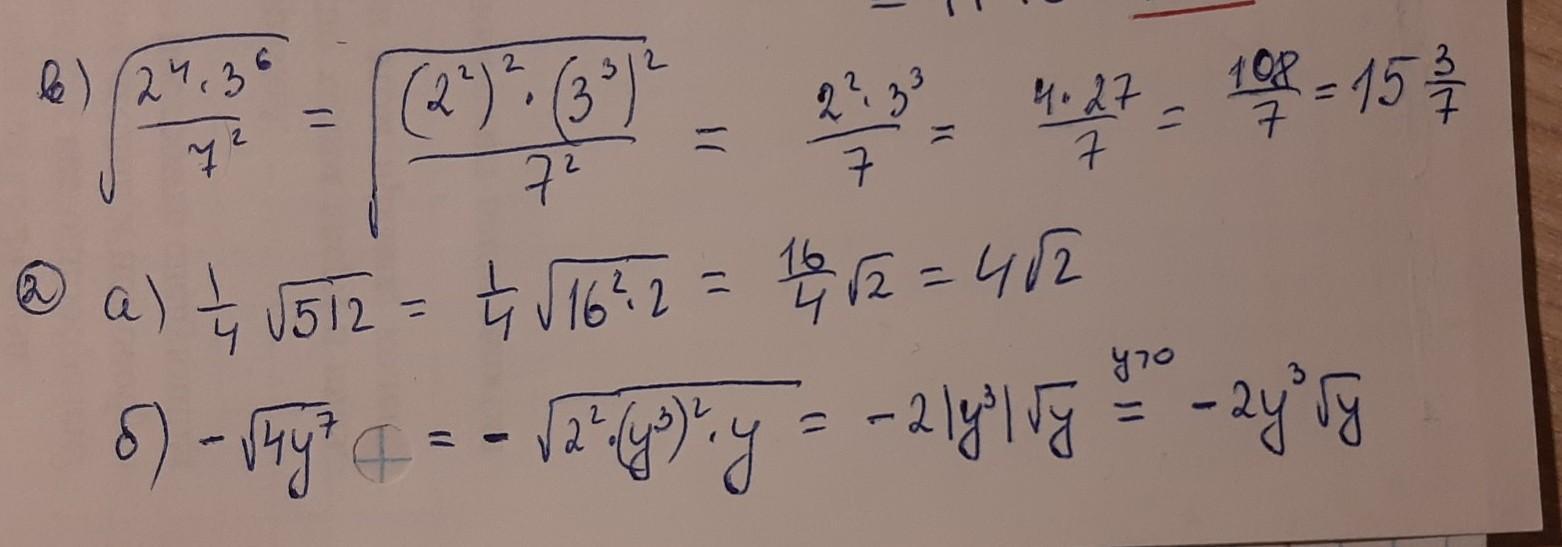 в) √(2⁴·3⁶/7²) = √((2²)²·(3³)²/7²) = 2²·3³/7 = 4·27/7 = 108/7 = 15 3/7
② а) 1/4 √512 = 1/4 √(16²·2) = 16/4 √2 = 4√2
y>0
б) -√(4y⁷) = -√(2²·(y³)²·y) = -2|y³|√y = -2y³√y